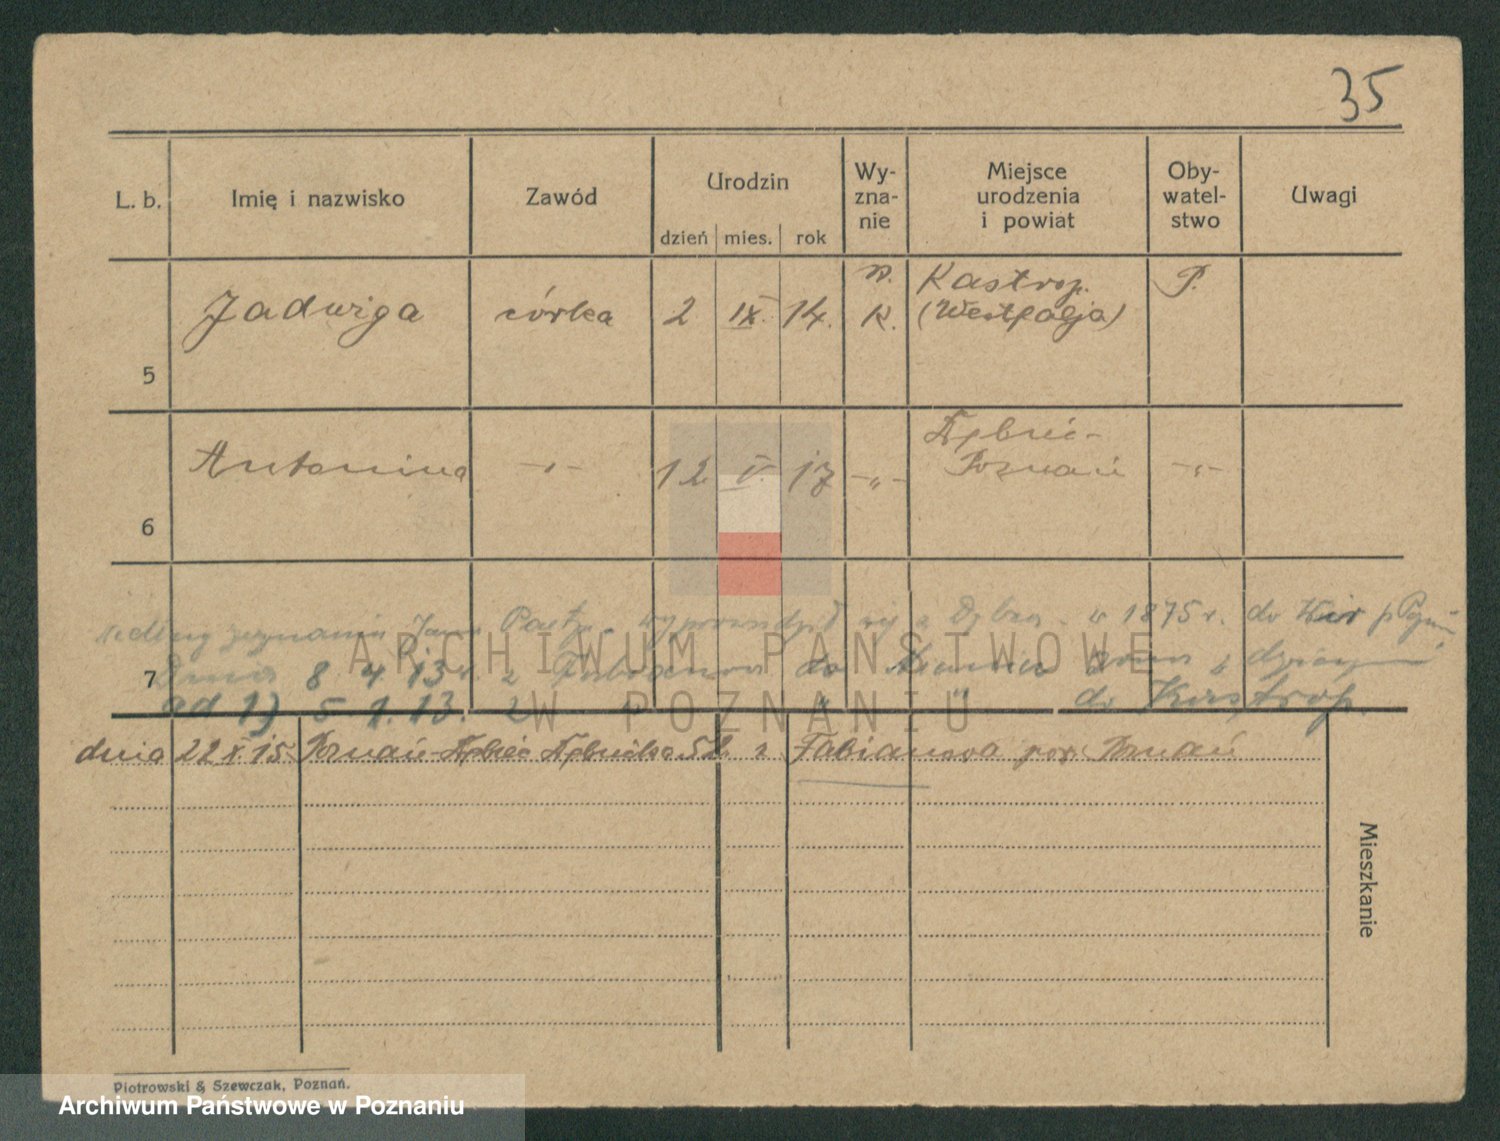 35
L. b. Imię i nazwisko Zawód Urodzin dzień mies. rok Wy-zna-nie Miejsce urodzenia i powiat Oby-watel-stwo Uwagi
5 Jadwiga córka 2 IX. 14. r. K. Kastrop. (Westfalja) P.
6 Antonina -"- 12 V. 17 -"- Dębiec- Poznań -"-
według zeznania Jana wyprowadził się z Dębca w 1875 r. do
7 Dnia 8 4. 13 r. z Fabianowa do
ad 1) 5. 1. 13. z " " " do Kastrop.
dnia 22 X. 15. Poznań-Dębiec Dębińska 52. z Fabianowa pow. Poznań
Mieszkanie
Piotrowski & Szewczak, Poznań.
ARCHIWUM PAŃSTWOWE
W POZNANIU
Archiwum Państwowe w Poznaniu